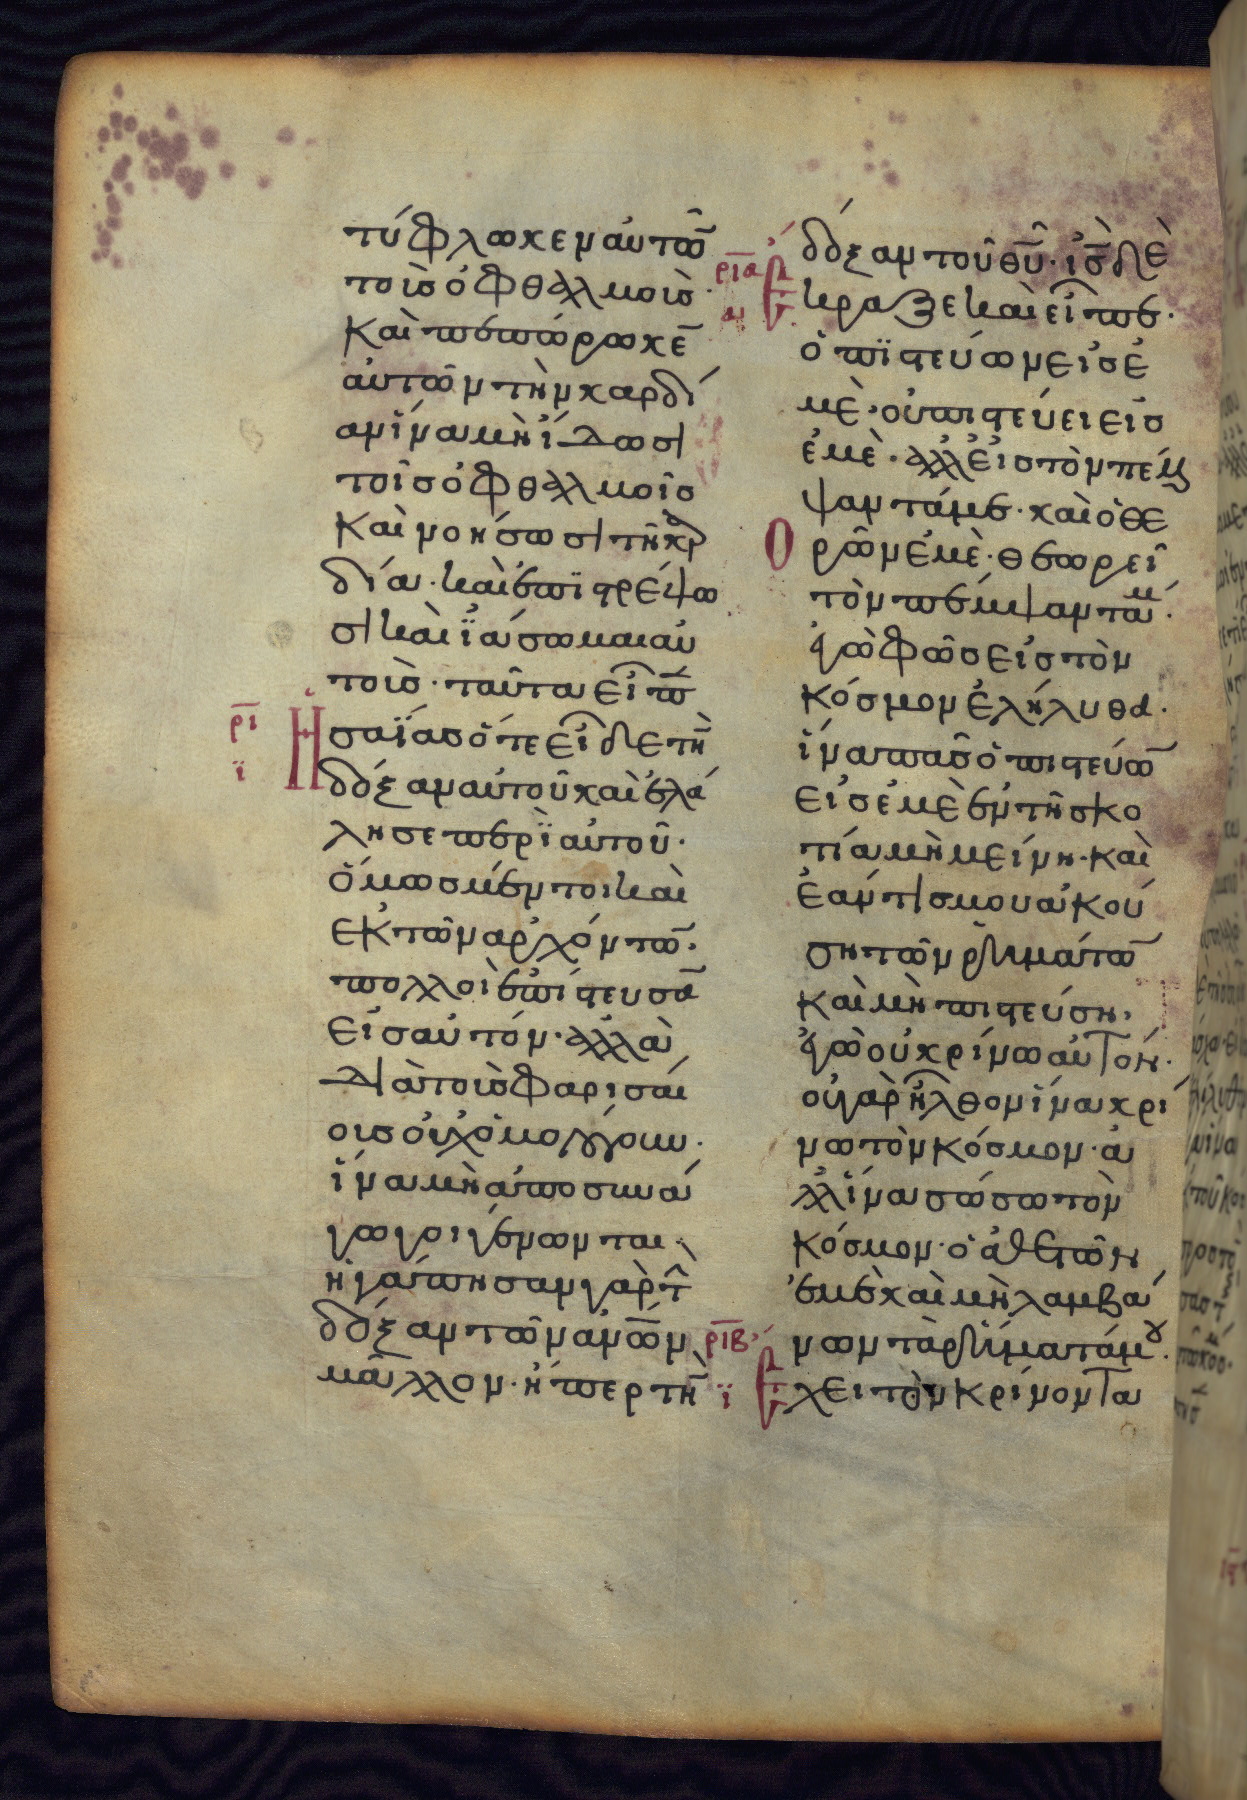 τύφλωκεν αὐτῶ̅
τοὶσ ὀφθαλμοὶσ·
καὶ πεπώρωκε̅
αὐτῶν τὴν καρδί
αν ἵνα μὴ ἴδωσι
τοῖσ ὀφθαλμοῖσ
καὶ νοήσωσι τῆ καρ
δία· καὶ ἐπϊστρέψω
σι καὶ ϊάσωμαι αὐ
τοὶσ· ταῦτα εἶπε̅
ρ̅ι̅ Ησαΐασ ὅτε εἶδε τὴ̅
ϊ δόξαν αὐτοῦ καὶ ἐλά
λησε περὶ αὐτοῦ·
ὅμωσ μέντοι καὶ
ἐκ τῶν αρχόντω̅·
πολλοὶ ἐπίστευσα̅
εἰσ αὐτόν· ἀλλὰ
διὰ τοὶσ φαρισαί
οισ οὐχ ὁμολόγουν·
ἵνα μὴ ἀποσυνά
γωγοι γένωνται·
ἠγάπησαν γὰρ τὴ̅
δόξαν τῶν ἀν̅ω̅ν
μᾶλλον· ἤπερ τὴ̅
δόξαν τοῦ θ̅υ̅· ἰ̅σ̅ δὲ
ρ̅ι̅α̅ Εκραξε καὶ εἶπεν·
ὁ πϊστεύων εἰσ ἐ
μὲ, οὐ πιστεύει εἰσ
ἐμὲ· ἀλλ εἰσ τὸν πέμ
ψαντά με· καὶ ὁ θε
Ορῶν ἐμὲ· θεωρεῖ
τὸν πέμψαντά μ·
ἐγὼ φῶσ εἰσ τὸν
κόσμον ἐλήλυθα·
ἵνα πᾶσ ὁ πιστεύω̅
εἰσ ἐμὲ ἐν τῆ σκο
τία μὴ μείνη· καὶ
ἐάν τισ μου ἀκού
ση τῶν ρημάτω̅
καὶ μὴ πιστεύση,
ἐγὼ οὐ κρίνω αὐτόν·
οὐ γὰρ ἦλθον ἵνα κρί
νω τὸν κόσμον· ἀ
λλ ἵνα σώσω τὸν
κόσμον· ὁ ἀθετῶν
ἐμὲ καὶ μὴ λαμβά
ρ̅ι̅β̅ νων τὰ ρήματά μου·
ϊ Εχει τὸν κρίνοντα